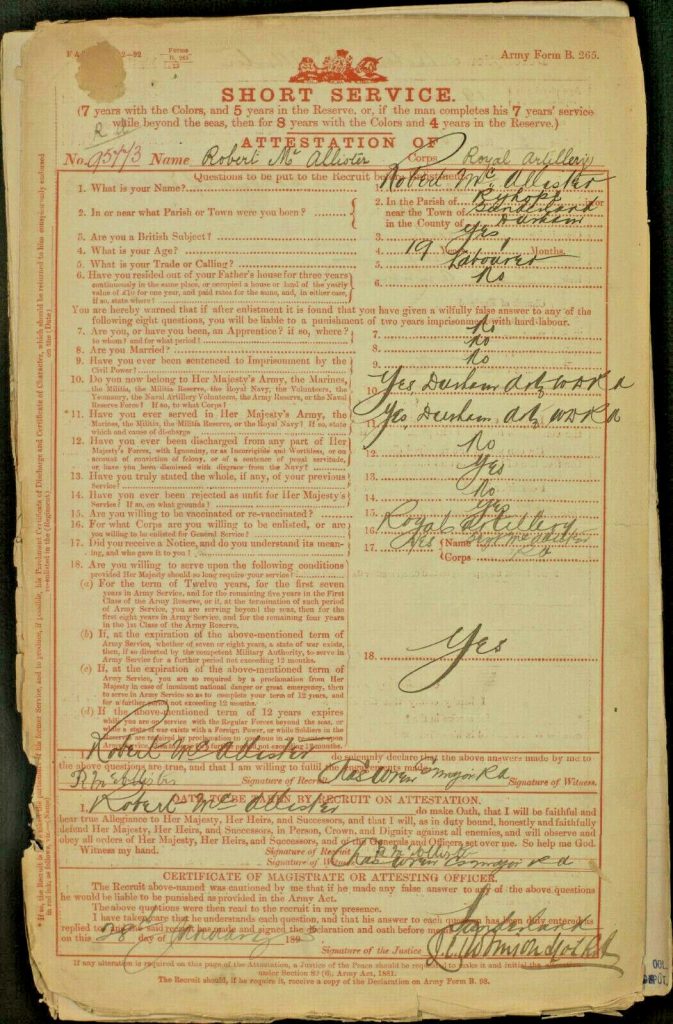 Forms
B. 265
Army Form B. 265.
SHORT SERVICE.
(7 years with the Colors, and 5 years in the Reserve, or, if the man completes his 7 years' service
while beyond the seas, then for 8 years with the Colors and 4 years in the Reserve.)
ATTESTATION OF
No. 95773 Name Robert Mc Allister Corps Royal Artillery
Questions to be put to the Recruit before
1. What is your Name? 1. Robert Mc Allister
2. In or near what Parish or Town were you born? 2. In the Parish of Ryhope or
near the Town of Sunderland
in the County of Durham
3. Are you a British Subject? 3. Yes
4. What is your Age? 4. 19 Months.
5. What is your Trade or Calling? 5. Labourer
6. Have you resided out of your Father's house for three years
continuously in the same place, or occupied a house or land of the yearly
value of £10 for one year, and paid rates for the same, and, in either case,
if so, state where? 6. No
You are hereby warned that if after enlistment it is found that you have given a wilfully false answer to any of the
following eight questions, you will be liable to a punishment of two years imprisonment with hard labour.
7. Are you, or have you been, an Apprentice? if so, where?
to whom? and for what period? 7. No
8. Are you Married? 8. No
9. Have you ever been sentenced to Imprisonment by the
Civil Power? 9. No
10. Do you now belong to Her Majesty's Army, the Marines,
the Militia, the Militia Reserve, the Royal Navy, the Volunteers, the
Yeomanry, the Naval Artillery Volunteers, the Army Reserve, or the Naval
Reserve Force? If so, to what Corps? 10. Yes Durham Arty W D R A
*11. Have you ever served in Her Majesty's Army, the
Marines, the Militia, the Militia Reserve, or the Royal Navy? If so, state
which and cause of discharge 11. Yes, Durham Arty W D R A
12. Have you ever been discharged from any part of Her
Majesty's Forces, with Ignominy, or as Incorrigible and Worthless, or on
account of conviction of felony, or of a sentence of penal servitude,
or have you been dismissed with disgrace from the Navy? 12. No
13. Have you truly stated the whole, if any, of your previous
Service? 13. Yes
14. Have you ever been rejected as unfit for Her Majesty's
Service? If so, on what grounds? 14. No
15. Are you willing to be vaccinated or re-vaccinated? 15. Yes
16. For what Corps are you willing to be enlisted, or are
you willing to be enlisted for General Service? 16. Royal Artillery
17. Did you receive a Notice, and do you understand its mean-
ing, and who gave it to you? 17. Yes Name
Corps R A
18. Are you willing to serve upon the following conditions
provided Her Majesty should so long require your service?
(a) For the term of Twelve years, for the first seven
years in Army Service, and for the remaining five years in the First
Class of the Army Reserve, or if, at the termination of such period
of Army Service, you are serving beyond the seas, then for the
first eight years in Army Service, and for the remaining four years
in the 1st Class of the Army Reserve.
(b) If, at the expiration of the above-mentioned term of
Army Service, whether of seven or eight years, a state of war exists,
then, if so directed by the competent Military Authority, to serve in
Army Service for a further period not exceeding 12 months.
(c) If, at the expiration of the above-mentioned term of
Army Service, you are so required by a proclamation from Her
Majesty in case of imminent national danger or great emergency, then
to serve in Army Service so as to complete your term of 12 years, and
for a further period not exceeding 12 months.
18. Yes
(d) If the above-mentioned term of 12 years expires
while you are on service with the Regular Forces beyond the seas, or
while a state of war exists with a Foreign Power, or while Soldiers in the
Reserve are required by proclamation to
for a further period not exceeding 12 months.
I, Robert Mc Allister do solemnly declare that the above answers made by me to
the above questions are true, and that I am willing to fulfil the engagements made.
R McAllister Signature of Recruit R A Signature of Witness.
OATH TO BE TAKEN BY RECRUIT ON ATTESTATION.
I, Robert Mc Allister do make Oath, that I will be faithful and
bear true Allegiance to Her Majesty, Her Heirs, and Successors, and that I will, as in duty bound, honestly and faithfully
defend Her Majesty, Her Heirs, and Successors, in Person, Crown, and Dignity against all enemies, and will observe and
obey all orders of Her Majesty, Her Heirs, and Successors, and of the Generals and Officers set over me. So help me God.
Witness my hand. Signature of Recruit
Signature of R A
CERTIFICATE OF MAGISTRATE OR ATTESTING OFFICER.
The Recruit above-named was cautioned by me that if he made any false answer to any of the above questions
he would be liable to be punished as provided in the Army Act.
The above questions were then read to the recruit in my presence.
I have taken care that he understands each question, and that his answer to each question has been duly entered as
replied to, and the said recruit has made and signed the declaration and oath before me at Sunderland
on this 28th day of January 189
Signature of the Justice
If any alteration is required on this page of the Attestation, a Justice of the Peace should be requested to make it and initial the alteration
under Section 80 (6), Army Act, 1881.
The Recruit should, if he require it, receive a copy of the Declaration on Army Form B. 98.